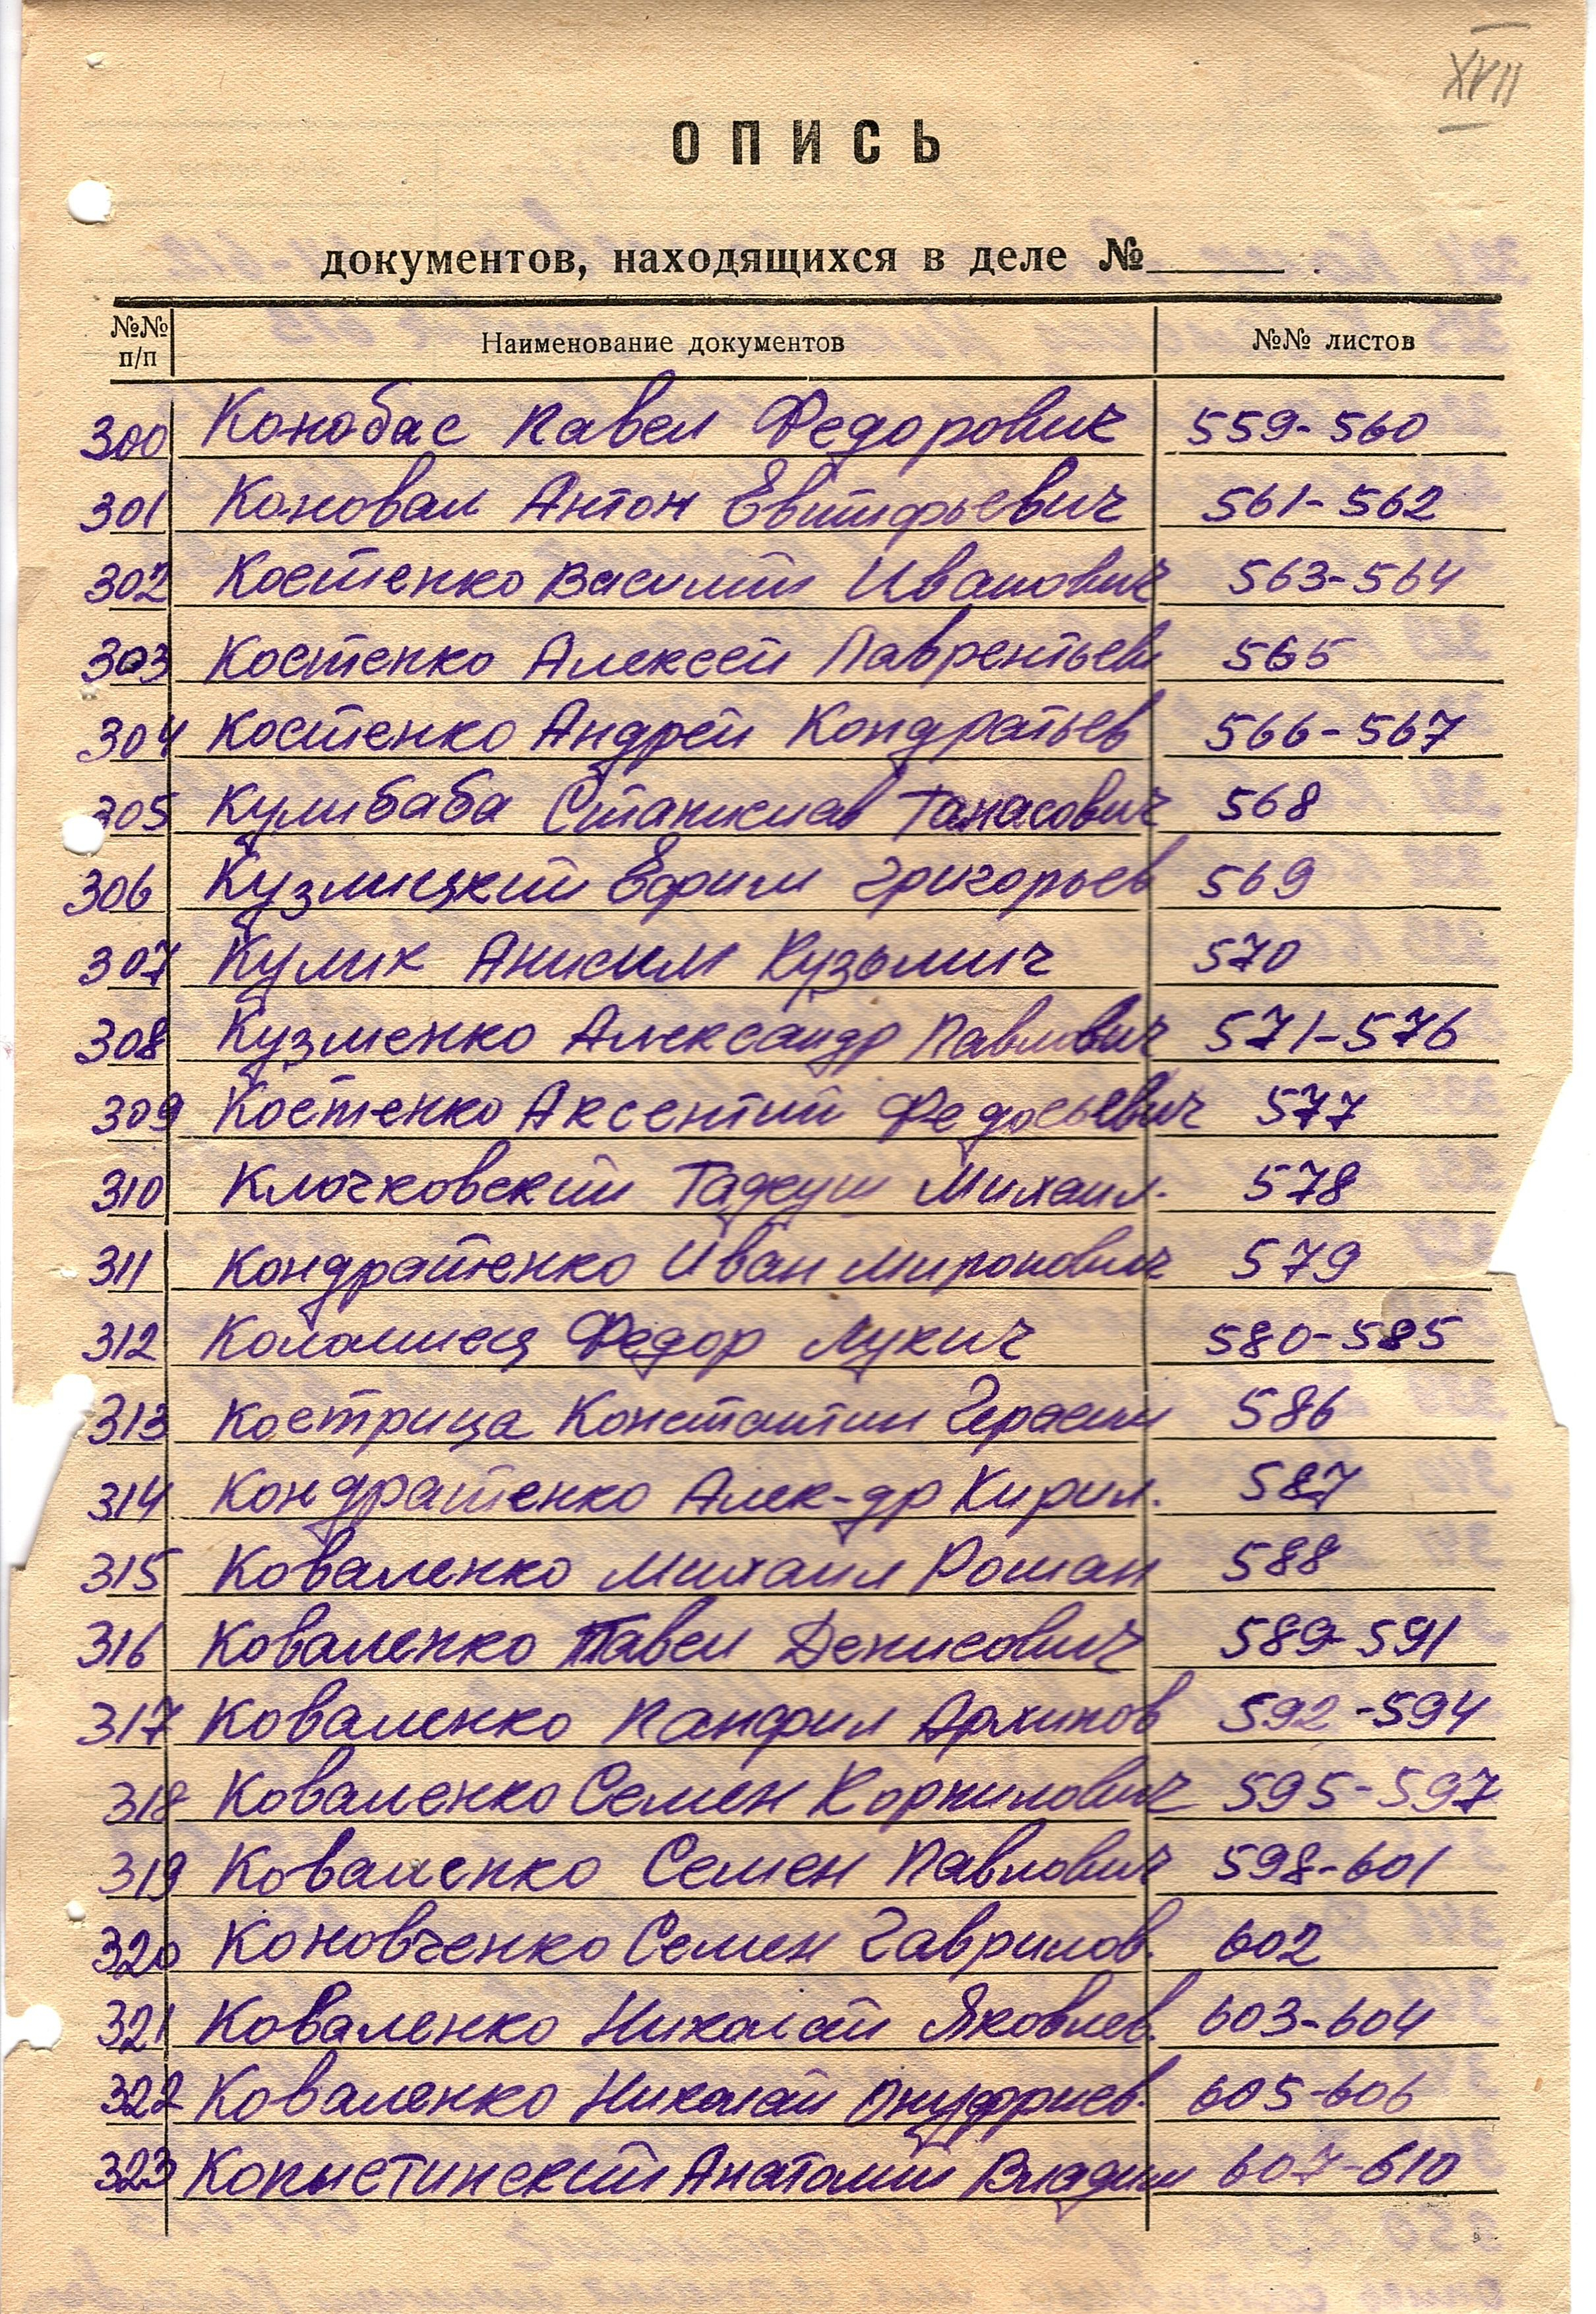 XVII
ОПИСЬ
документов, находящихся в деле №
№№ п/п Наименование документов №№ листов
300 Конобас Павел Федорович 559-560
301 Коновал Антон Евтифьевич 561-562
302 Костенко Василий Иванович 563-564
303 Костенко Алексей Лаврентьев 565
304 Костенко Андрей Кондратьев 566-567
305 Кулибаба Станислав Танасович 568
306 Кузмицкий Ефим Григорьев 569
307 Кулик Анисим Кузьмич 570
308 Кузменко Александр Павлович 571-576
309 Костенко Аксентий Федосьевич 577
310 Ключковский Тадеуш Михаил. 578
311 Кондратенко Иван Миронович 579
312 Коломиец Федор Лукич 580-585
313 Кострица Константин Герасим 586
314 Кондратенко Алек-др Кирил. 587
315 Коваленко Михаил Роман 588
316 Коваленко Павел Денисович 589-591
317 Коваленко Панфил Архипов 592-594
318 Коваленко Семен Корнилович 595-597
319 Коваленко Семен Павлович 598-601
320 Коновченко Семен Гаврилов. 602
321 Коваленко Николай Яковлев. 603-604
322 Коваленко Николай Онуфриев. 605-606
323 Копыстинский Анатолий Владим 607-610